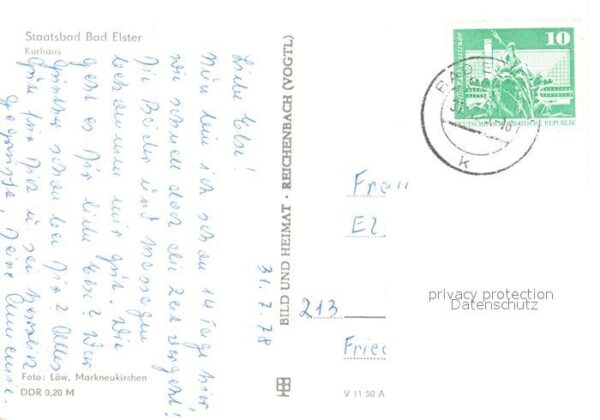 Staatsbad Bad Elster
Kurhaus
31.7.78
Liebe Else!
Nun bin ich schon 14 Tage hier,
wie schnell doch die Zeit vergeht!
Die Bäder und Massagen
bekommen mir gut. Wie
geht es Dir liebe Else? War
Günther schon bei Dir? Alles
Gute für Dich u. sei herzlich
gegrüsst, Deine Annemie.
Foto: Löw, Markneukirchen
DDR 0,20 M
BILD UND HEIMAT · REICHENBACH (VOGTL)
V 11 50 A
10
DEUTSCHE DEMOKRATISCHE REPUBLIK
BAD E
k
Frau
El
213
Fried
privacy protection
Datenschutz